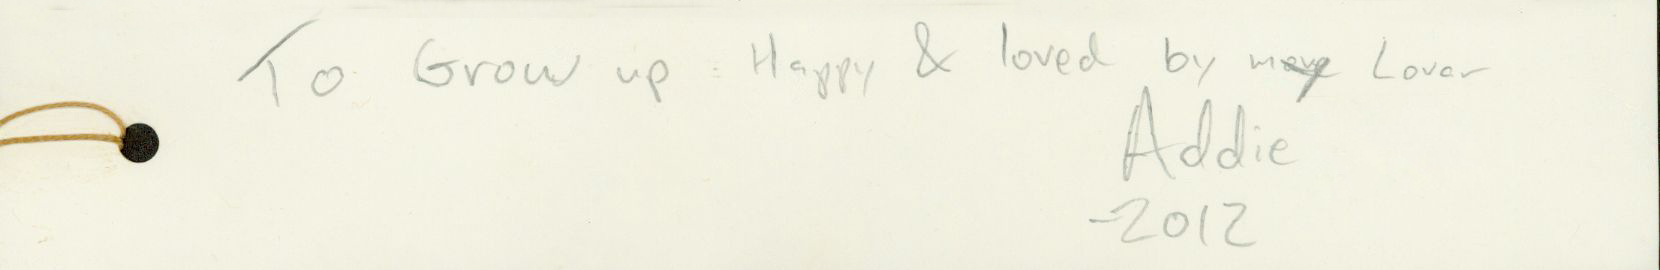 To Grow up Happy & loved by my Lover
Addie
-2012